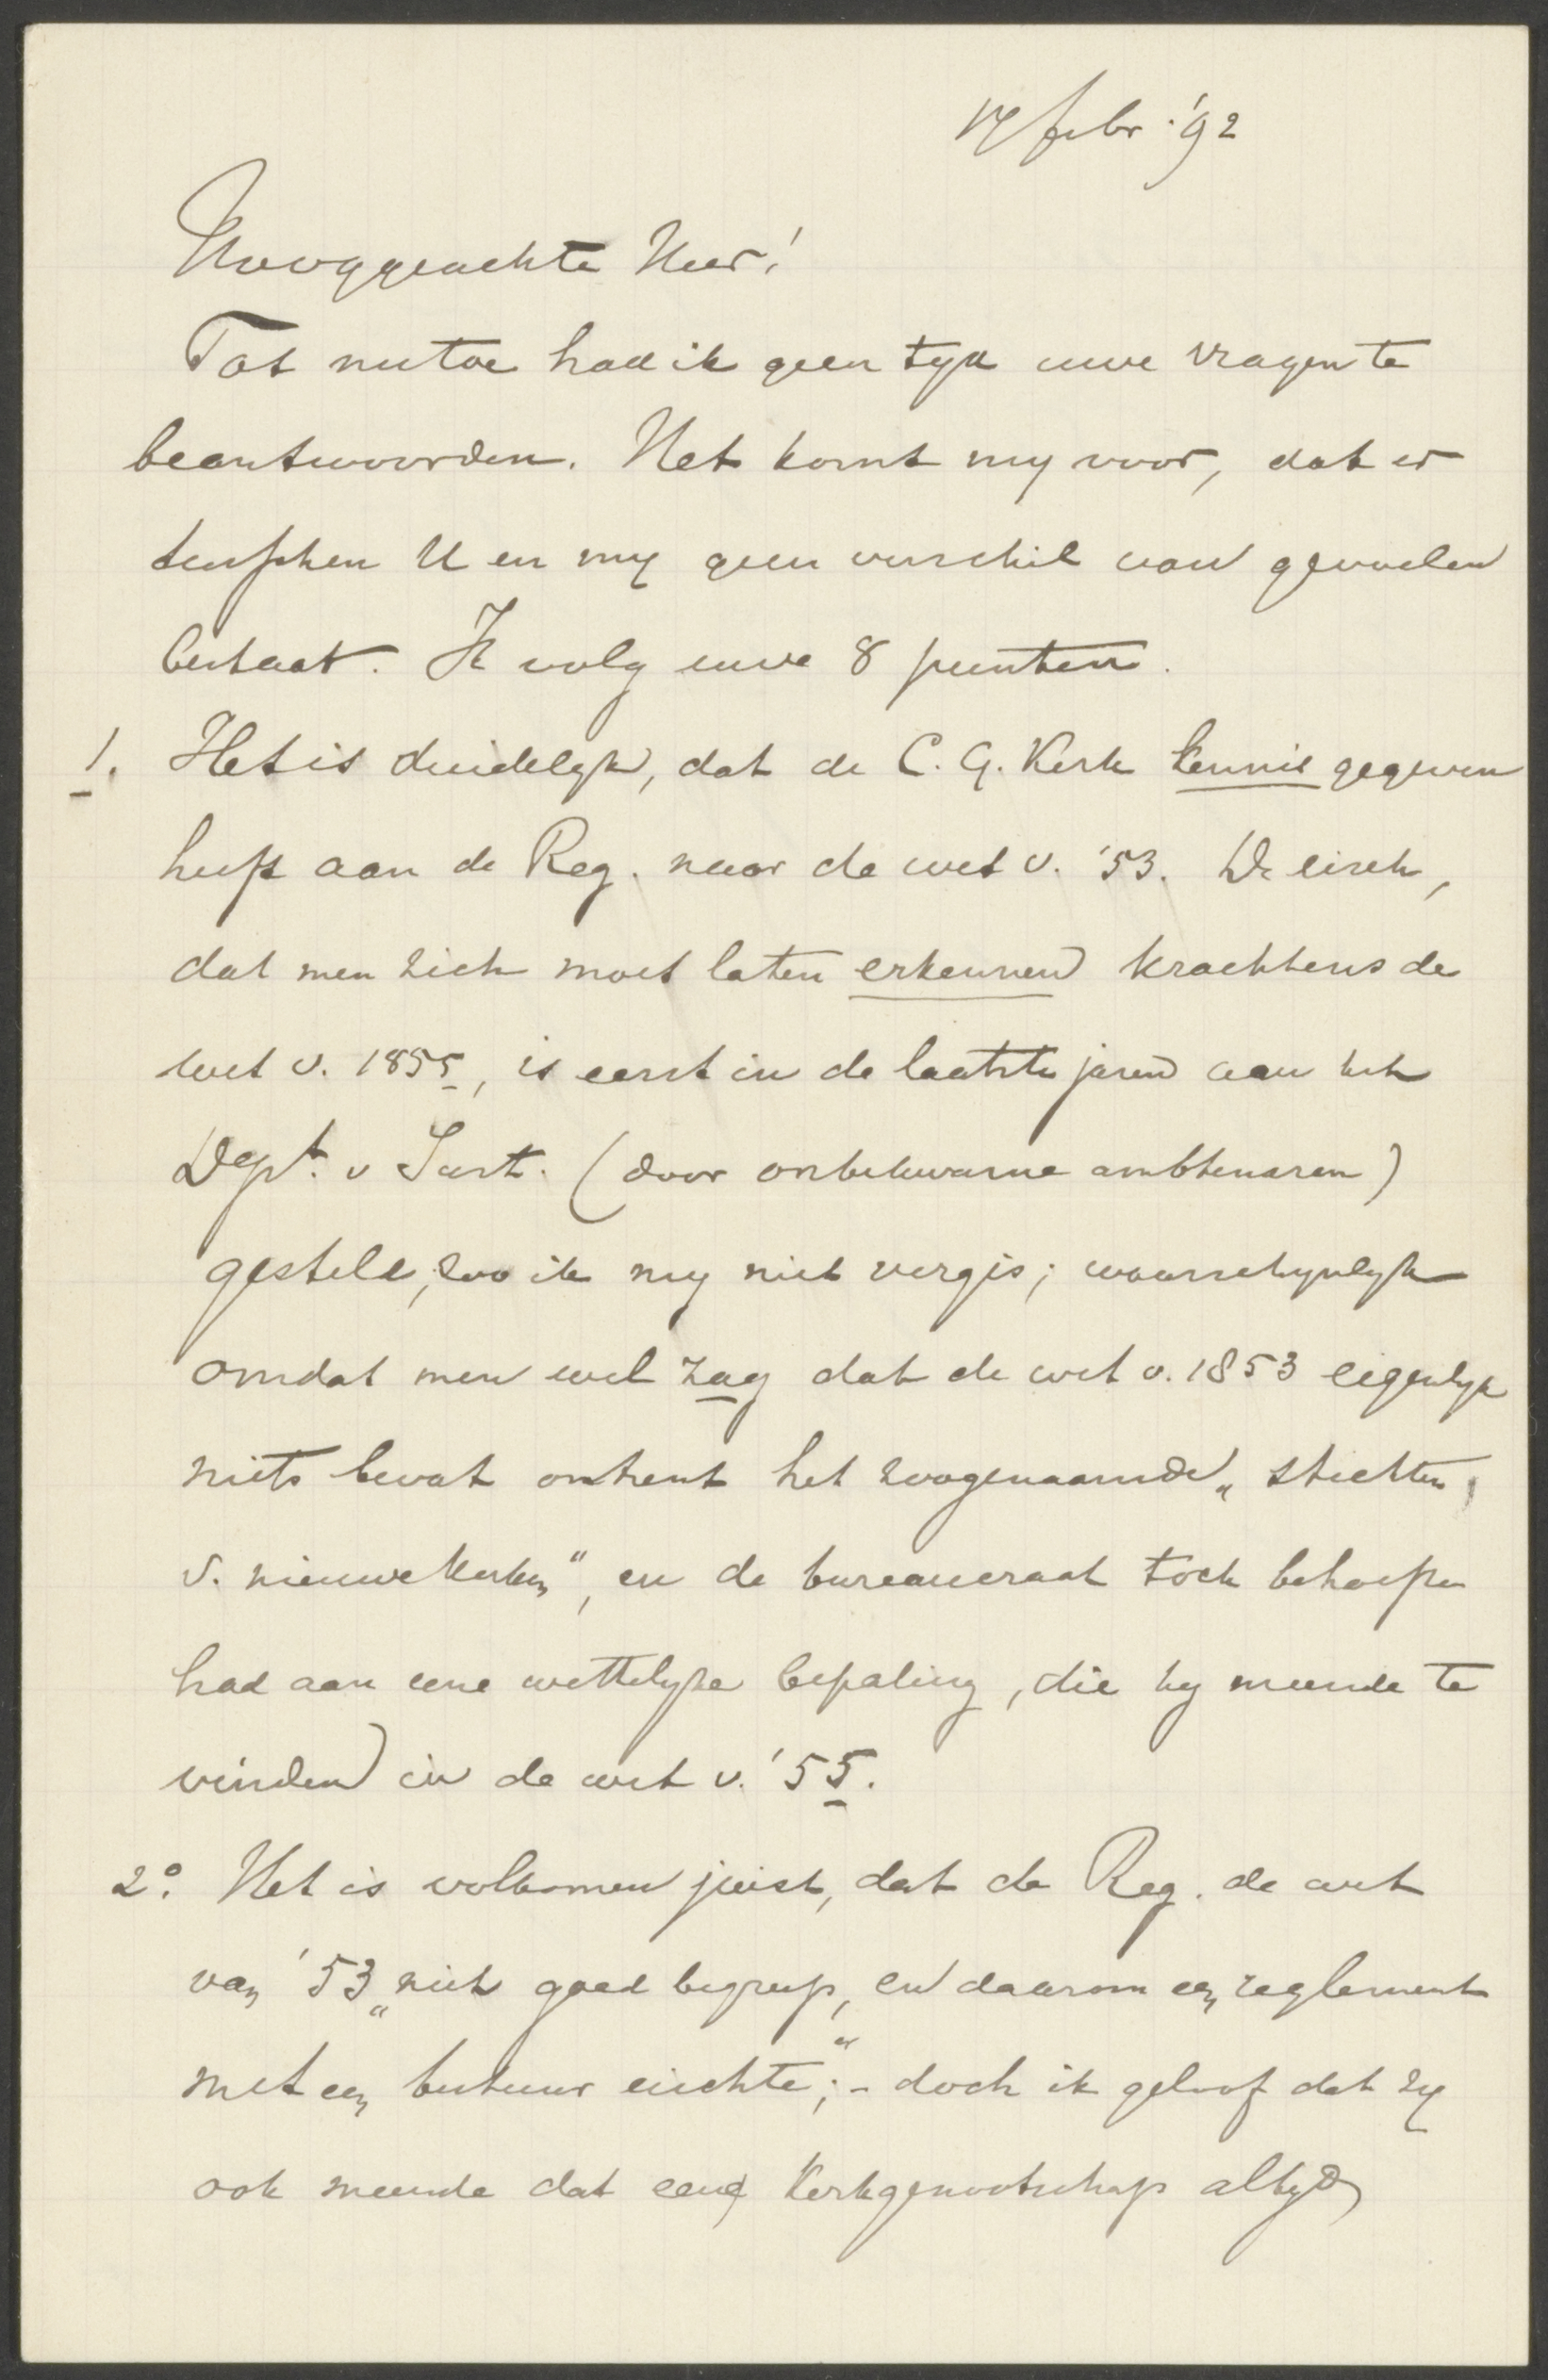 17 febr. '92
Hooggeachte Heer!
Tot nu toe had ik geen tyd uwe vragen te
beantwoorden. Het komt my voor, dat er
tusschen U en my geen verschil van gevoelen
bestaat. Ik volg uwe 8 punten.
1. Het is duidelyk, dat de C. G. Kerk kennis gegeven
heeft aan de Reg. naar de wet v. '53. De eisch,
dat men zich moet laten erkennen krachtens de
wet v. 1855, is eerst in de laatste jaren aan het
Dept. v Just. (door onbekwame ambtenaren)
gesteld, zoo ik my niet vergis; waarschynlyk
omdat men wel zag dat de wet v. 1853 eigenlyk
niets bevat omtrent het zoogenaamde „stichten
v. nieuwe Kerken", en de bureaucraat toch behoefte
had aan eene wettelyke bepaling, die hy meende te
vinden in de wet v. '55.
2º. Het is volkomen juist, dat de Reg. de wet
van '53 „niet goed begreep, en daarom een reglement
met een bestuur eischte;" - doch ik geloof dat zy
ook meende dat een Kerkgenootschap altyd